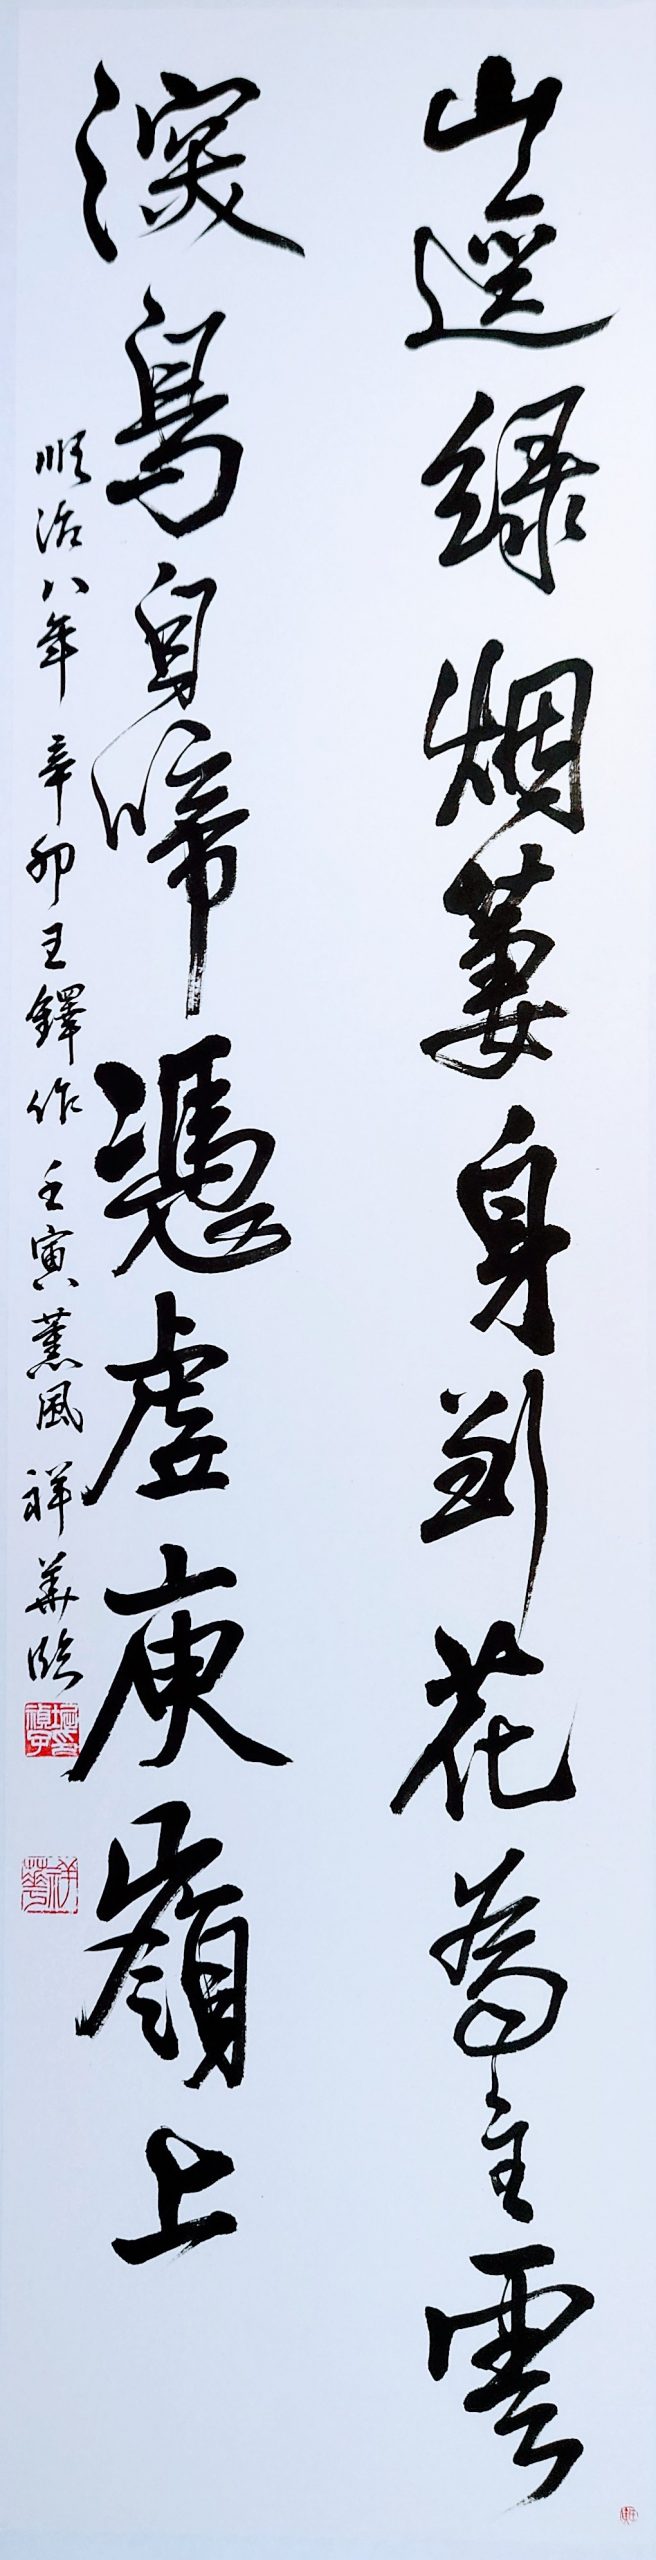 山逕緑烟萋身到花為主雲
深鳥自啼憑虛庾嶺上
順治八年 辛卯王鐸作 壬寅薰風 祥華臨
祥華